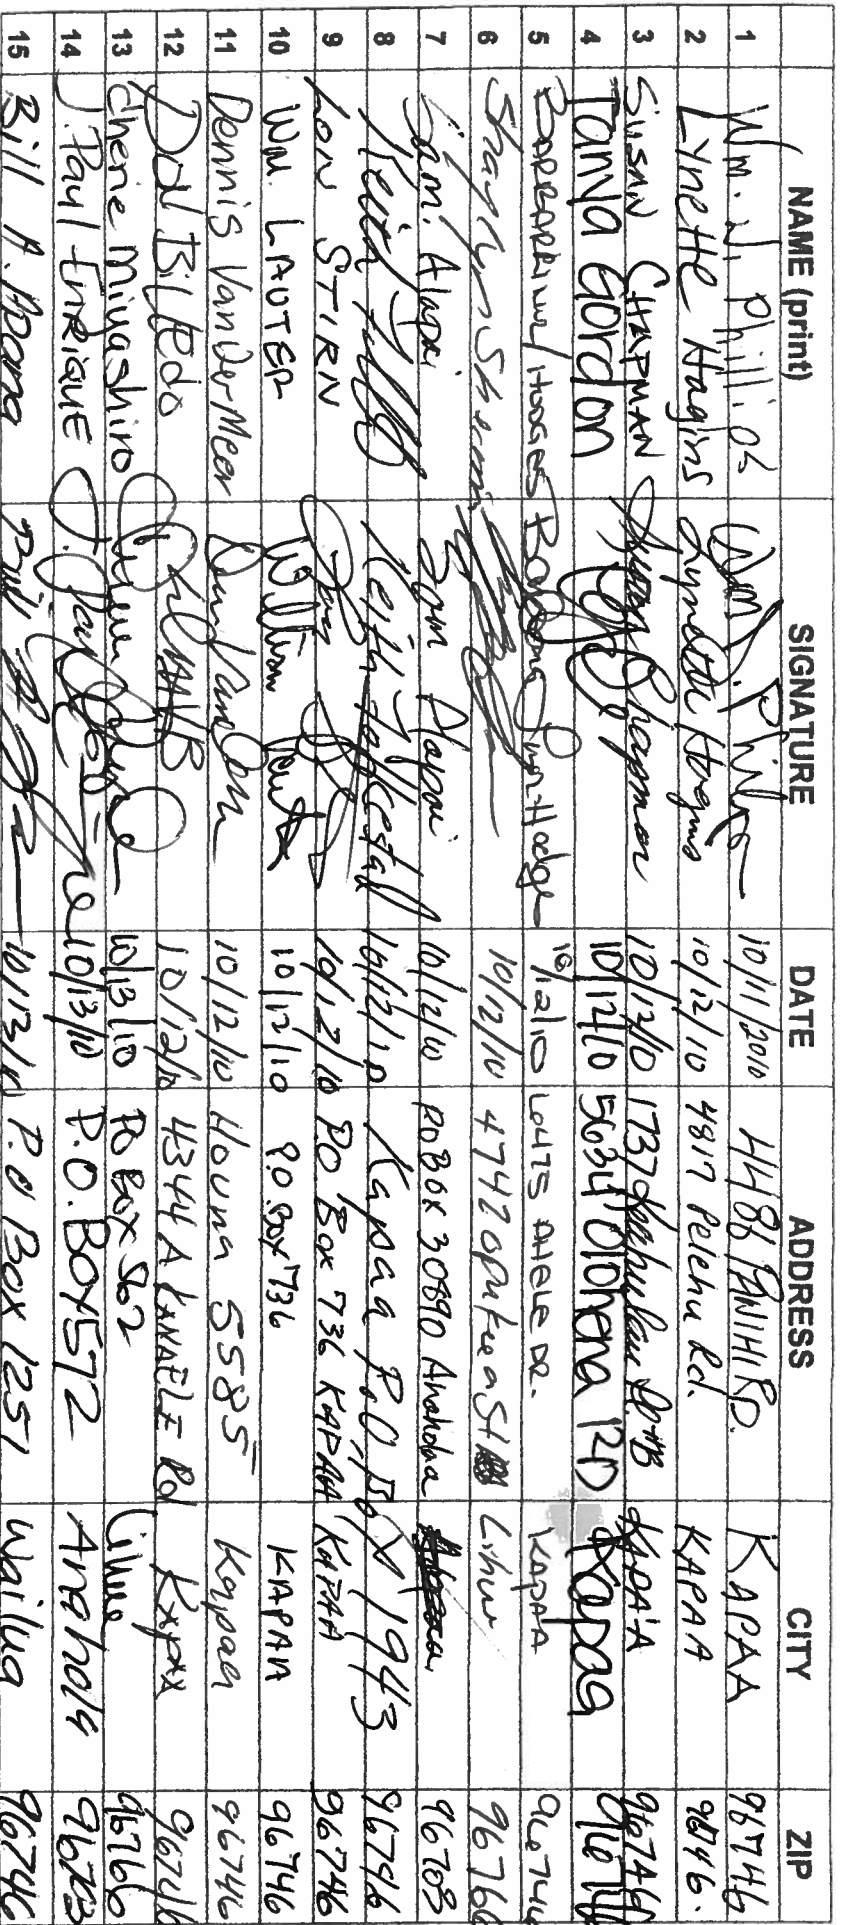 NAME (print) SIGNATURE DATE ADDRESS CITY ZIP
1 Wm. J. Phillips Wm J. Phillips 10/11/2010 4486 PANIHI RD. KAPAA 96746
2 Lynette Hagins Lynette Hagins 10/12/10 4817 Pelehu Rd. KAPAA 96746.
3 SUSAN CHAPMAN Susan Chapman 10/12/10 1737 KAPA'A 96746
4 Tanya Gordon 10/12/10 5634 Olohena RD Kapaa 96746
5 Hodges Hodge 10/12/10 6475 AHELE DR. KAPAA 96746
6 10/12/10 4742 Lihue 96766
7 Sam. Alapai Sam Alapai 10/12/10 PO BOX 30890 Anahola 96703
8 Keith Keith 10/12/10 Kapaa P.O. Box 1943 96746
9 LON STIRN 10/12/10 P.O Box 736 KAPAA KAPAA 96746
10 Wm. LAUTER William 10/12/10 P.O. Box 736 KAPAA 96746
11 Dennis VanDerMeer 10/12/10 Houna 5585 Kapaa 96746
12 BILEDO 10/12/10 4344 A KANAELE Rd KAPAA 96746
13 Cherie Miyashiro 10/13/10 PO BOX 562 Lihue 96766
14 J. Paul ENRIQUE 10/13/10 P.O. BOX 572 Anahola 96703
15 Bill A. Apana Bill 10/13/10 P.O Box 1251 Wailua 96746